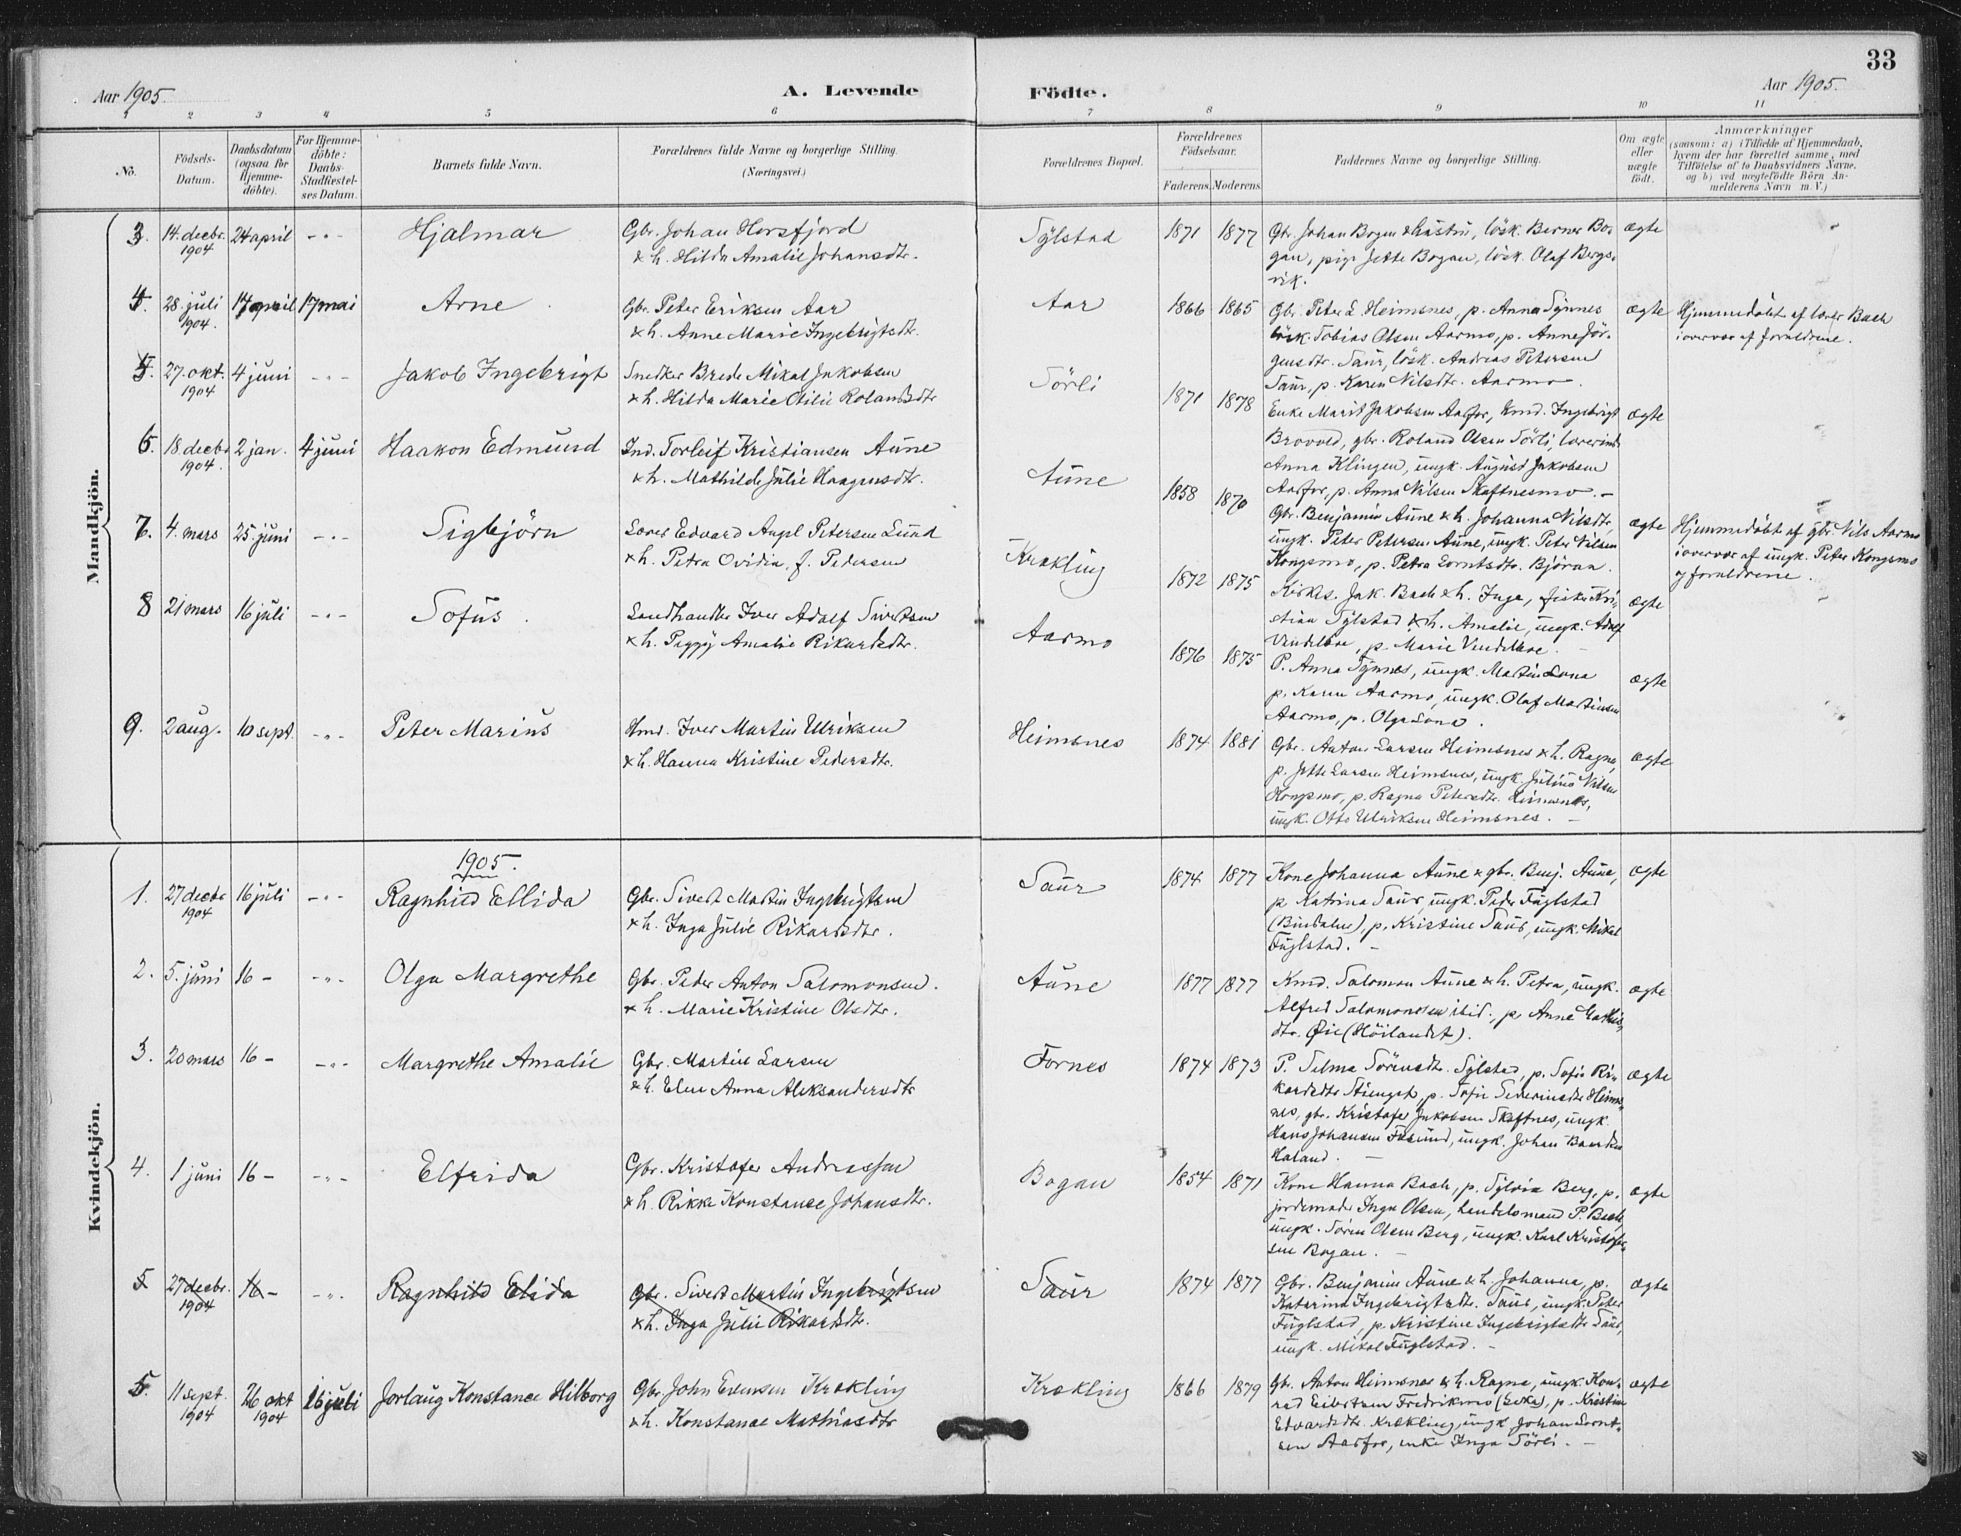 33
Aar 1905.
A. Levende
Födte.
Aar 1905.
1 2 3 4 5 6 7 8 9 10 11
No.
Födsels-Datum.
Daabsdatum (ogsaa for Hjemme-döbte).
For Hjemme-döbte: Daabs-Stadfæstel-ses Datum.
Barnets fulde Navn.
Forældrenes fulde Navne og borgerlige Stilling. (Næringsvei.)
Forældrenes Bopæl.
Forældrenes Födselsaar.
Faderens. Moderens.
Faddernes Navne og borgerlige Stilling.
Om ægte eller uægte födt.
Anmærkninger
(saasom: a) i Tilfælde af Hjemmedaab, hvem der har forrettet samme, med Tilföielse af to Daabsvidners Navne. og b) ved uægtefödte Börn An-melderens Navn m. V.)
Mandkjön.
3. 14. decbr. 1904 24 april -"- Hjalmar
Gbr. Johan Horsfjord
& h. Hilda Amalie Johansdtr.
Sylstad 1871 1877
Gbr. Johan Bogen & hustru, lösk. Berner Bo-
gan, pige Jette Bogan, lösk. Olaf Bergs-
vik.
ægte
4. 28. juli 1904. 17 april 17 mai Arne
Gbr. Peter Eriksen Aar
& h. Anne Marie Ingebrigtsdtr.
Aar 1866 1865
Gbr. Peter L. Heimsnes, p. Anna Synnes
lösk. Tobias Olsen Aarmo, p. Anne Jör-
gensdtr. Saur, lösk. Andreas Petersen
Saur, p. Karen Nilsdtr. Aarmo.
ægte
Hjemmedöbt af lærer Bach
i overvær af forældrene.
5. 27. okt. 1904 4 juni -"- Jakob Ingebrigt
Snedker Brede Mikal Jakobsen
& h. Hilda Marie Otilie Rolandsdtr
Sörli 1871 1878
Enke Marit Jakobsen Aasfor, kmd. Ingebrigt
Brovold, gbr. Roland Olsen Sörli, lærerinde
Anna Klingen, ungk. August Jakobsen
Aasfor, p. Anna Nilsen Skaftnesmo. -
ægte
6. 18. decbr 1904. 2 jan. 4 juni Haakon Edmund
Ind. Torleif Kristiansen Aune
& h. Mathilde Julie Haagensdtr.
Aune 1858 1870
Gbr. Benjamin Aune & h. Johanna Nilsdtr,
ungk. Peter Petersen Aune, ungk. Peter Nilsen
Kongsmo, p. Petra Lorntsdtr. Björan.
ægte
Hjemmedöbt af gbr. Nils Aarmo
i overvær af ungk. Peter Kongsmo
og forældrene.
7. 4. mars 25. juni -"- Sigbjörn
Lærer Edvard Angel Petersen Lund
& h. Petra Ovidia, f. Pedersen
Krækling 1872 1875
Kirkes. Jak. Bach & h. Inga, fisker Kri-
stian Sylstad & h. Amalie, ungk. Adolf
p. Marie
ægte
8 21 mars 16 juli -"- Sofus.
Landhandler Iver Adolf Sivertsen
& h. Peggy Amalie Rikardsdtr.
Aarmo 1876 1875
P. Anna Synnes, ungk. Martin Lona
p. Karen Aarmo, ungk. Olaf Martinsen
Aarmo, p. Olga Lona.
ægte
9. 2 aug. 10 sept. -"- Peter Marius
Hmd. Iver Martin Ulriksen
& h. Hanna Kristine Pedersdtr.
Heimsnes 1874 1881
Gbr. Anton Larsen Heimsnes & h. Ragna,
p. Jette Larsen Heimsnes, ungk. Julius Nilsen
Kongsmo, p. Ragna Petersdtr. Heimsnes,
ungk. Otto Ulriksen Heimsnes. -
ægte
Kvindekjön.
1905.
1. 27 decbr 1904 16 juli -"- Ragnhild Ellida
Gbr. Sivert Martin Ingebrigtsen
& h. Inga Julie Rikardsdtr.
Saur 1874 1877
Kone Johanna Aune & gbr. Benj. Aune,
p. Katrina Saur, ungk. Peder Fuglstad
(Bindalen), p. Kristine Saur, ungk. Mikal
Fuglstad. -
ægte
2. 5. juni 16 - -"- Olga Margrethe
Gbr. Peder Anton Salomonsen.
& h. Marie Kristine Olsdtr.
Aune 1877 1877
Kmd. Salomon Aune & h. Petra, ungk.
Alfred Salomonsen ibid., p. Anne
dtr. Øie (Höilandet).
ægte
3. 20 mars 16 - -"- Margrethe Amalie
Gbr. Martin Larsen
& h. Elen Anna Aleksandersdtr
Fornes 1874 1873
P. Selma Sörensdtr. Sylstad, p. Sofie Ri-
kardsdtr. p. Sofie Severinsdtr. Heims-
nes, gbr. Kristofer Jakobsen Skaftnes, ungk.
Hans Johansen Fosund, ungk. Johan
Haland. -
ægte
4. 1 juni 16 - -"- Elfrida
Gbr. Kristofer Andreassen
& h. Rikke Konstanse Johansdtr.
Bogan 1854 1871
Kone Hanna Bach, p. Sylvia Berg, p.
jordemoder Inga Olsen, handelsmand P. Bach,
ungk. Sören Olsen Berg, ungk. Karl Kristofer-
sen Bogan. -
ægte
5 27 decbr. 1904 16 - -"- Ragnhild Elida
Gbr. Sivert Martin Ingebrigtsen
& h. Inga Julie Rikardsdtr.
Saur 1874 1877
Gbr. Benjamin Aune & h. Johanna, p.
Katarina Ingebrigtsdtr. Saur, ungk. Peter
Fuglstad, p. Kristine Ingebrigtsdtr Saur,
ungk. Mikal Fuglstad. -
ægte
5. 11 sept. 1904 26 okt 1904 16 juli Jorlaug Konstance Hilborg
Gbr. John Evensen Krækling
& h. Konstanse Mathiasdtr
Krækling 1866 1879
Gbr. Anton Heimsnes & h. Ragna, ungk. Kon-
rad Eibertsen Fredriksmo p. Kristine
Edvardsdtr. Krækling, ungk Johan Lornt-
sen Aasfor, enke Inga Sörli. -
ægte